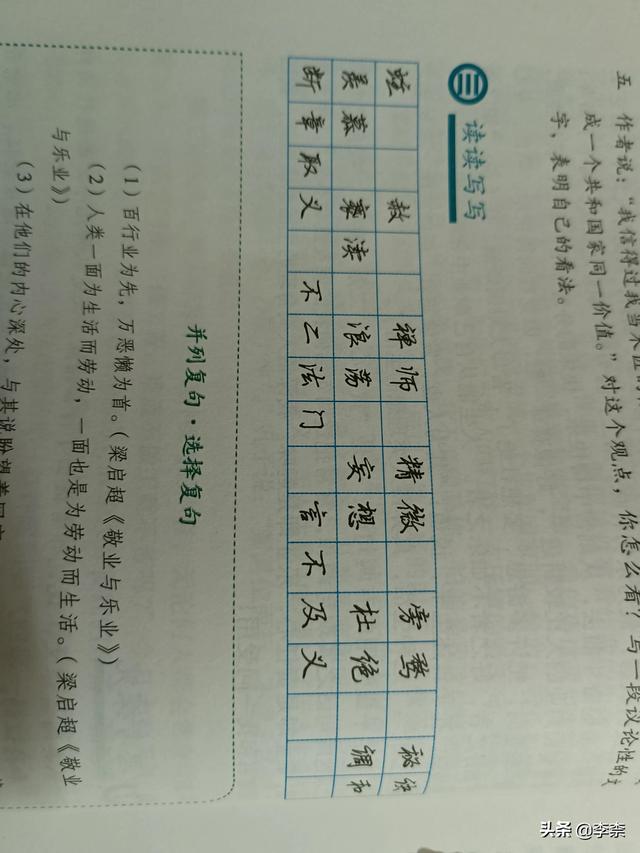 五 作者说：“我信得过我当木
成一个共和国家同一价值。”对这个观点，你怎么看？与一段议论性的
字，表明自己的看法。
三 读读写写
蛀 赦 禅师 精微 旁骛 秘诀
羡慕 亵渎 浪荡 妄想 杜绝 调和
断章取义 不二法门 言不及义
并列复句·选择复句
（1）百行业为先，万恶懒为首。（梁启超《敬业与乐业》）
（2）人类一面为生活而劳动，一面也是为劳动而生活。（梁启超《敬业
与乐业》）
（3）在他们的内心深处，与其说盼望着
头条 @李柰